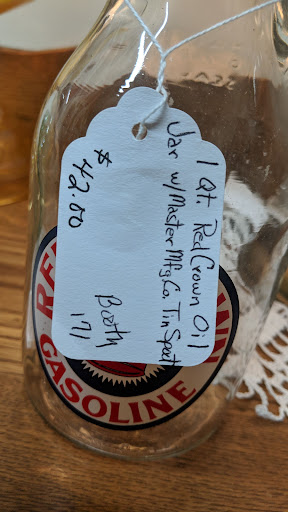 1 Qt Red Crown Oil
Jar w/Master Mfg Co. Tin Spout
$42.00
Booth
171
RE
GASOLINE